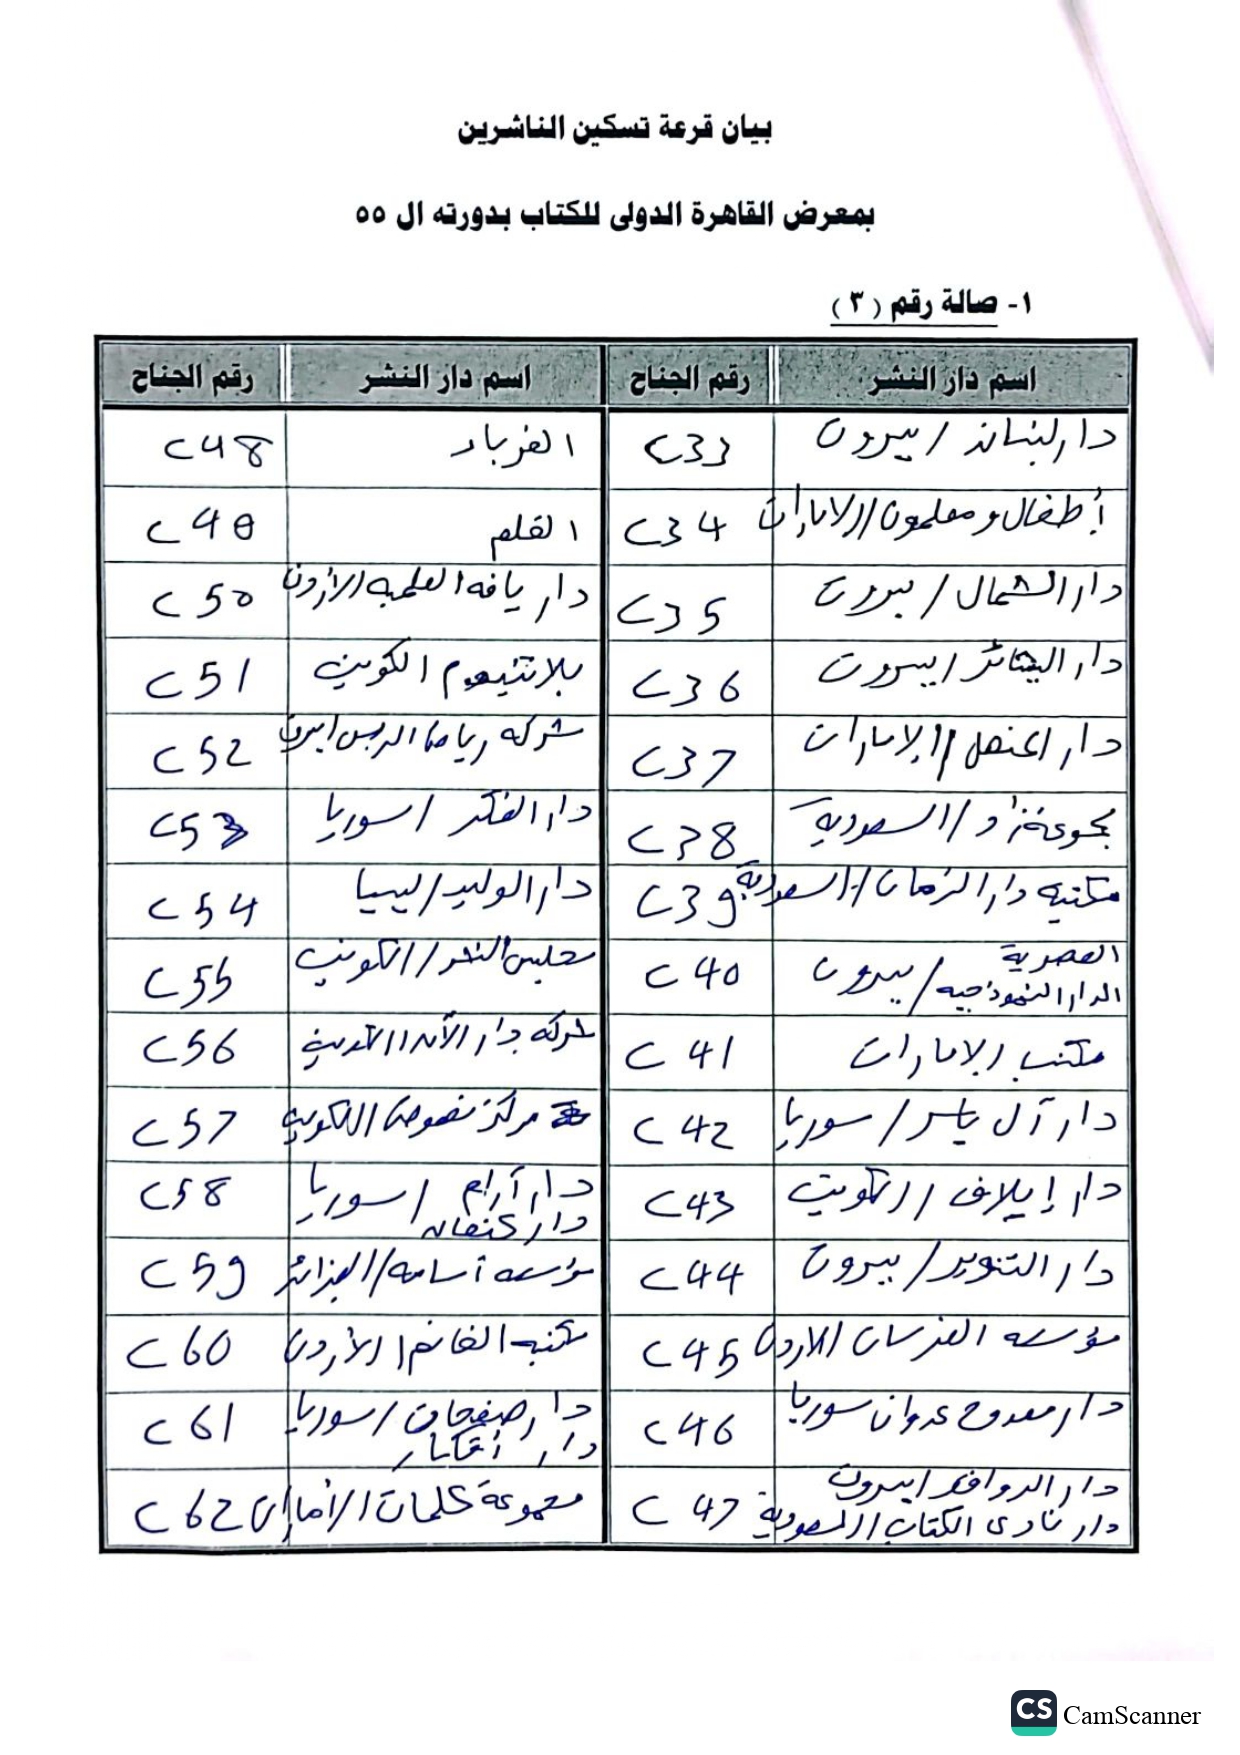 بيان قرعة تسكين الناشرين
بمعرض القاهرة الدولى للكتاب بدورته ال ٥٥
١- صالة رقم ( ٣ )
اسم دار النشر رقم الجناح اسم دار النشر رقم الجناح
دار لبنان / بيروت C33 الغرباء C48
أطفال ومعلمون / الامارات C34 القلم C49
دار الشمال / بيروت C35 دار يافه العلميه / الأردن C50
دار البشائر / بيروت C36 بلاتنيوم / الكويت C51
دار المنهل / الامارات C37 شركه رياض الريس / بيروت C52
مجموعة زاد / السعودية C38 دار الفكر / سوريا C53
مكتبه دار الزمان / السعودية C39 دار الوليد / ليبيا C54
العصرية
الدار النموذجيه / بيروت C40 مجلس النشر / الكويت C55
مكتب الامارات C41 شركه دار C56
دار آل ياسر / سوريا C42 مركز نصوص / الكويت C57
دار إيلاف / الكويت C43 دار آرام / سوريا C58
دار كنعان
دار التنوير / بيروت C44 مؤسسه أسامه / الجزائر C59
مؤسسه الفرسان / الاردن C45 مكتبه الغانم / الأردن C60
دار ممدوح عدوان سوريا C46 دار صفحات / سوريا C61
دار أفكار
دار الروافد / بيروت
دار نادى الكتاب / السعودية C47 مجموعة كلمات / الأمارات C62
CS CamScanner